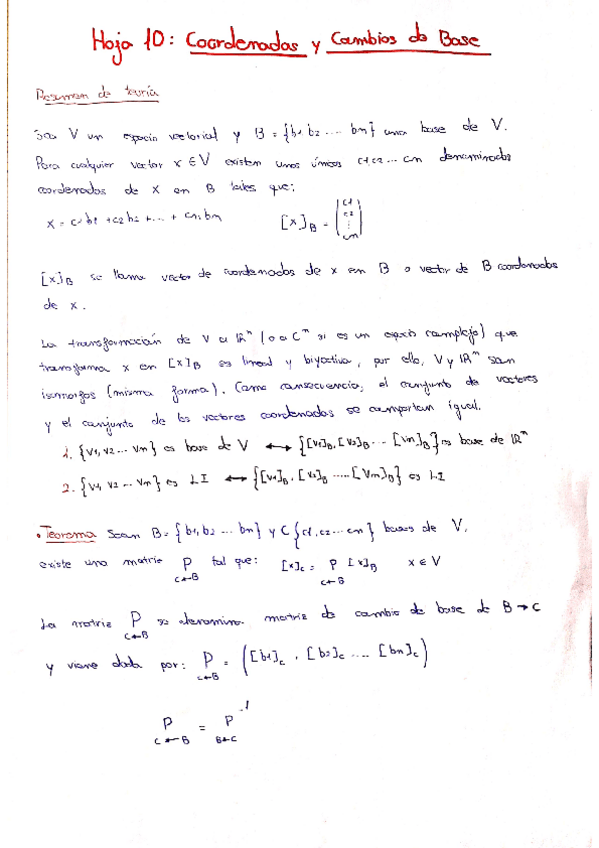 Hoja 10: Coordenadas y Cambios de Base
Resumen de teoría
Sea V un espacio vectorial y B = {b1, b2 .... bn} una base de V.
Para cualquier vector x ∈ V existen unos únicos c1, c2 ... cn denominados
coordenadas de x en B tales que:
x = c1b1 + c2b2 + ... + cn, bn [x]B = (c1 c2 ⋮ cn)
[x]B se llama vector de coordenadas de x en B o vector de B coordenadas
de x.
La transformación de V a ℝⁿ (o a ℂⁿ si es un espacio complejo) que
transforma x en [x]B es lineal y biyectiva, por ello, V y ℝⁿ son
isomorfos (misma forma). Como consecuencia, el conjunto de vectores
y el conjunto de los vectores coordenados se comportan igual.
1. {v1, v2 ... vm} es base de V ↔ {[v1]B, [v2]B ... [vm]B} es base de ℝⁿ
2. {v1, v2 ... vm} es LI ↔ {[v1]B, [v2]B ..... [vm]B} es LI
• Teorema Sean B = {b1, b2 ... bn} y C {c1, c2 ... cn} bases de V,
existe una matriz P C←B tal que: [x]C = P C←B [x]B x ∈ V
La matriz P C←B se denomina matriz de cambio de base de B → C
y viene dada por: P C←B = ([b1]C, [b2]C .... [bn]C)
P C←B = P⁻¹ B←C